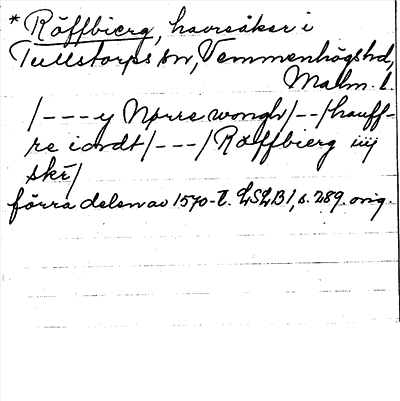 *Röffbierg, havreåker i
Tullstorps sn, Vemmenhögshd,
Malm. l.
/---y Nørre wongh/--/hauff-
re iordt/---/Røffbierg iiij
skr/
förra delen av 1570-t. LSLB1, s. 289. orig.